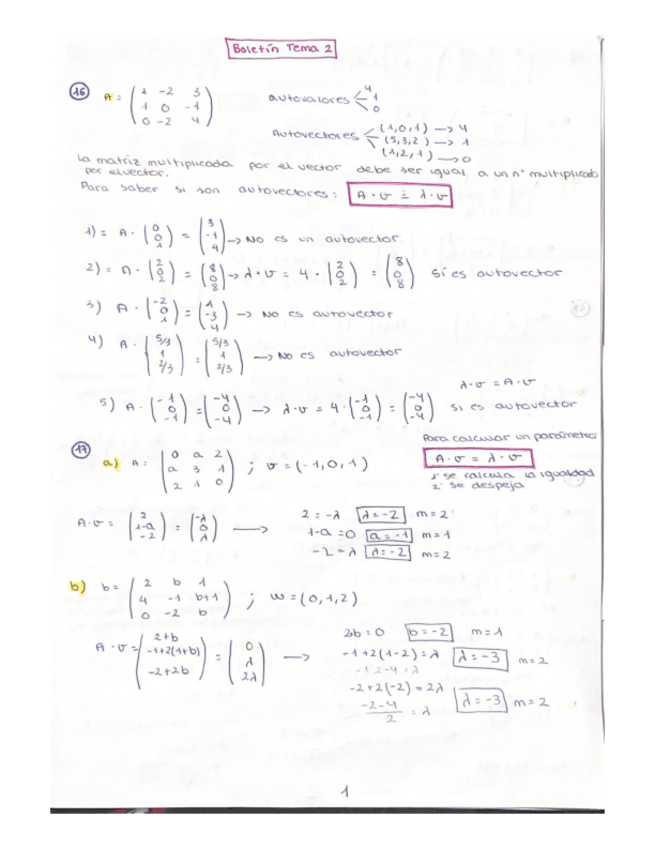 Boletín Tema 2
16 A = ( 1 -2 3 / 1 0 -1 / 0 -2 4 ) autovalores < 4 1 0
Autovectores < (1,0,1) → 4
(5,3,2) → 1
(1,2,1) → 0
La matriz multiplicada por el vector debe ser igual a un nº multiplicado
por el vector.
Para saber si son autovectores: A · v = λ · v
1) = A · ( 0 0 1 ) = ( 3 -1 4 ) → No es un autovector
2) = A · ( 2 0 2 ) = ( 8 0 8 ) → λ · v = 4 · ( 2 0 2 ) = ( 8 0 8 ) Sí es autovector
3) A · ( -2 0 1 ) = ( 1 -3 4 ) → No es autovector
4) A · ( 5/3 1 2/3 ) = ( 5/3 1 2/3 ) → No es autovector
λ · v = A · v
5) A · ( -1 0 -1 ) = ( -4 0 -4 ) → λ · v = 4 · ( -1 0 -1 ) = ( -4 0 -4 ) si es autovector
17 Para calcular un parámetro
a) A = ( 0 a 2 / a 3 1 / 2 1 0 ) ; v = (-1, 0, 1) A · v = λ · v
1º se calcula la igualdad
2º se despeja
A · v = ( 2 1-a -2 ) = ( -λ 0 λ ) → 2 = -λ λ = -2 m = 2
1-a = 0 a = -1 m = 1
-2 = λ λ = -2 m = 2
b) b = ( 2 b 1 / 4 -1 b+1 / 0 -2 b ) ; w = (0, 1, 2)
A · v = ( 2+b -1+2(1+b) -2+2b ) = ( 0 λ 2λ ) → 2b = 0 b = -2 m = 1
-1+2(1-2) = λ λ = -3 m = 2
-1 2-4 = λ
-2+2(-2) = 2λ
-2-4 / 2 = λ λ = -3 m = 2
1